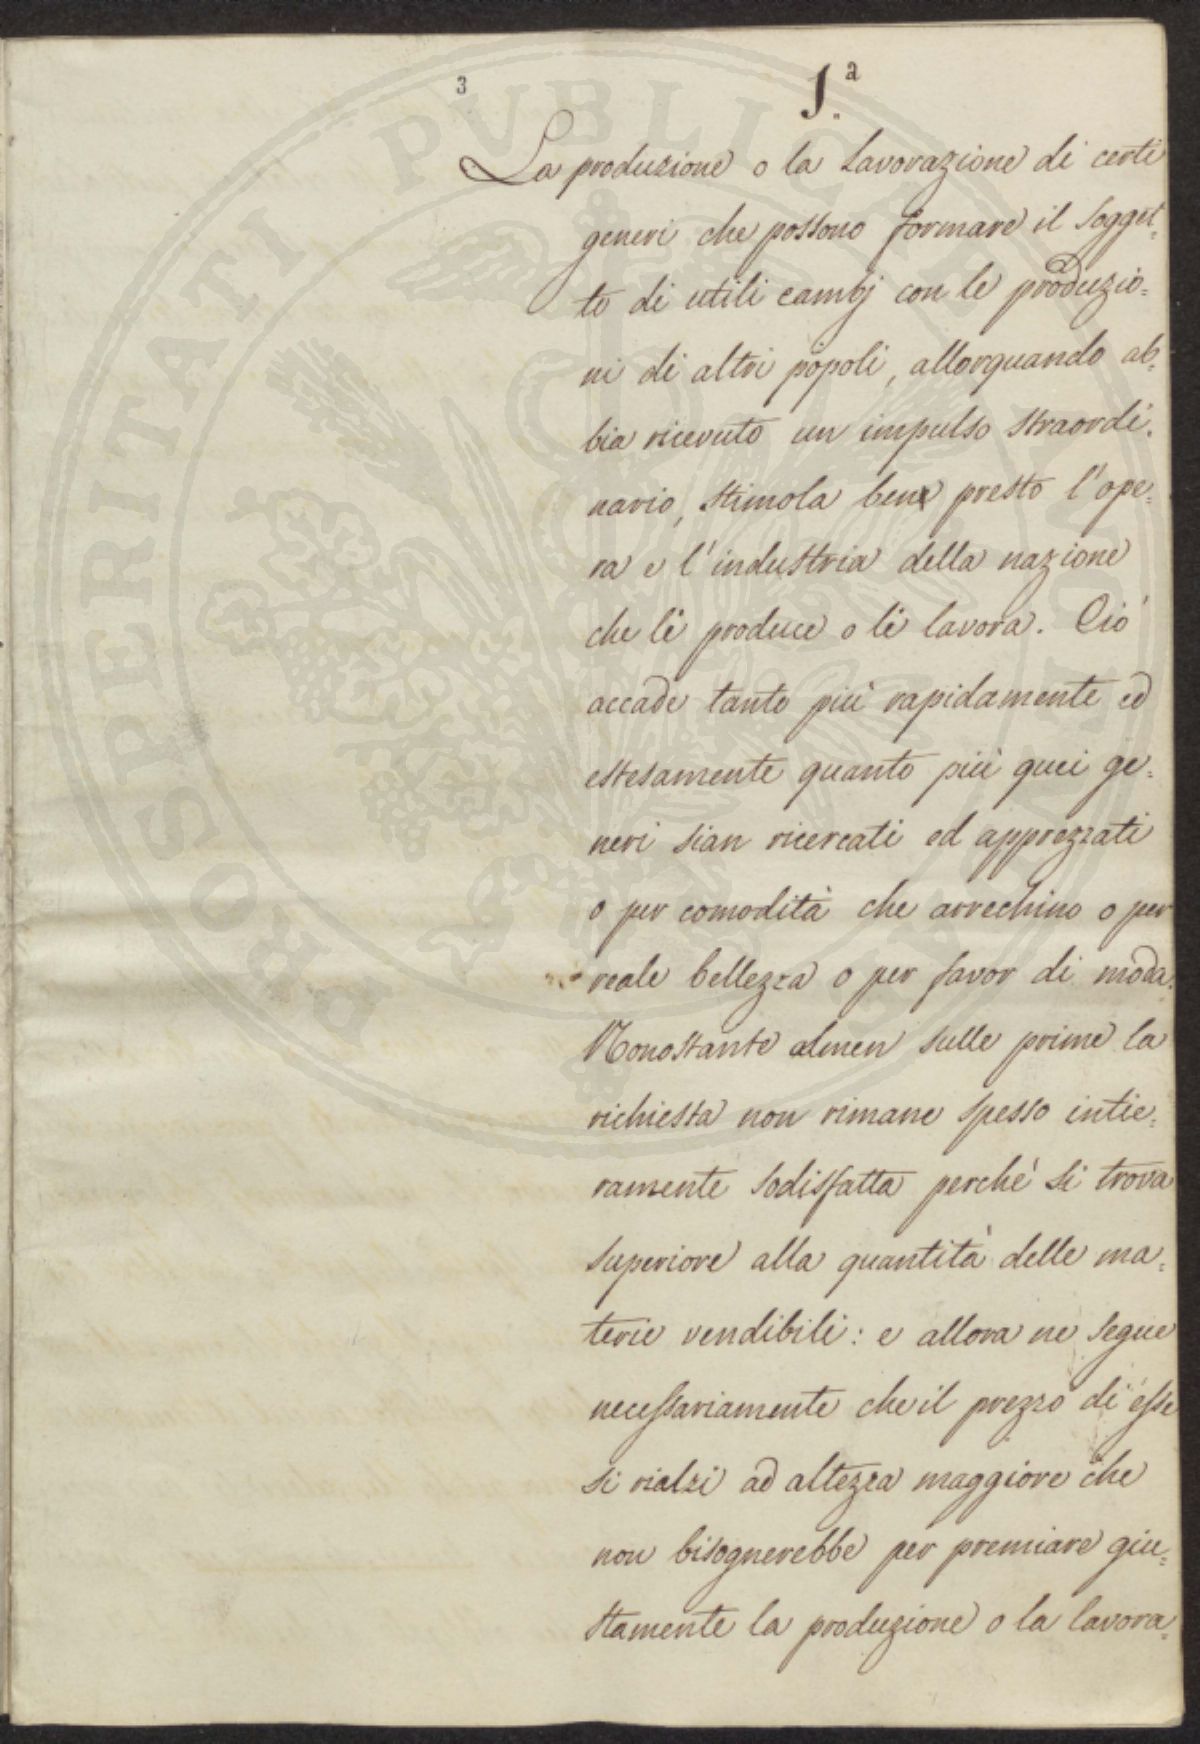 3
1.ª
La produzione o la lavorazione di certi
generi che possono formare il sogget-
to di utili cambj con le produzio=
ni di altri popoli, allorquando ab-
bia ricevuto un impulso straordi-
nario, stimola ben presto l'ope-
ra e l'industria della nazione
che li produce o li lavora. Ciò
accade tanto più rapidamente ed
estesamente quanto più quei ge-
neri sian ricercati ed apprezzati
o per comodità che arrechino o per
reale bellezza o per favor di moda.
Nonostante almen sulle prime la
richiesta non rimane spesso intie-
ramente sodisfatta perchè si trova
superiore alla quantità delle ma-
terie vendibili: e allora ne segue
necessariamente che il prezzo di esse
si rialzi ad altezza maggiore che
non bisognerebbe per premiare giu-
stamente la produzione o la lavora=
PROSPERITATI PVBLICAE AVGENDAE